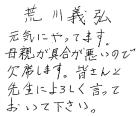 荒川義弘
元気にやってます。
母親が具合が悪いので
欠席します。皆さんと
先生によろしく言って
おいて下さい。